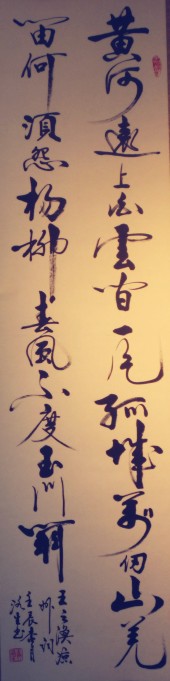 黄河遠上白雲間一片孤城萬仞山羌
笛何須怨楊柳春風不度玉門關
王之渙凉
州詞
壬辰春月